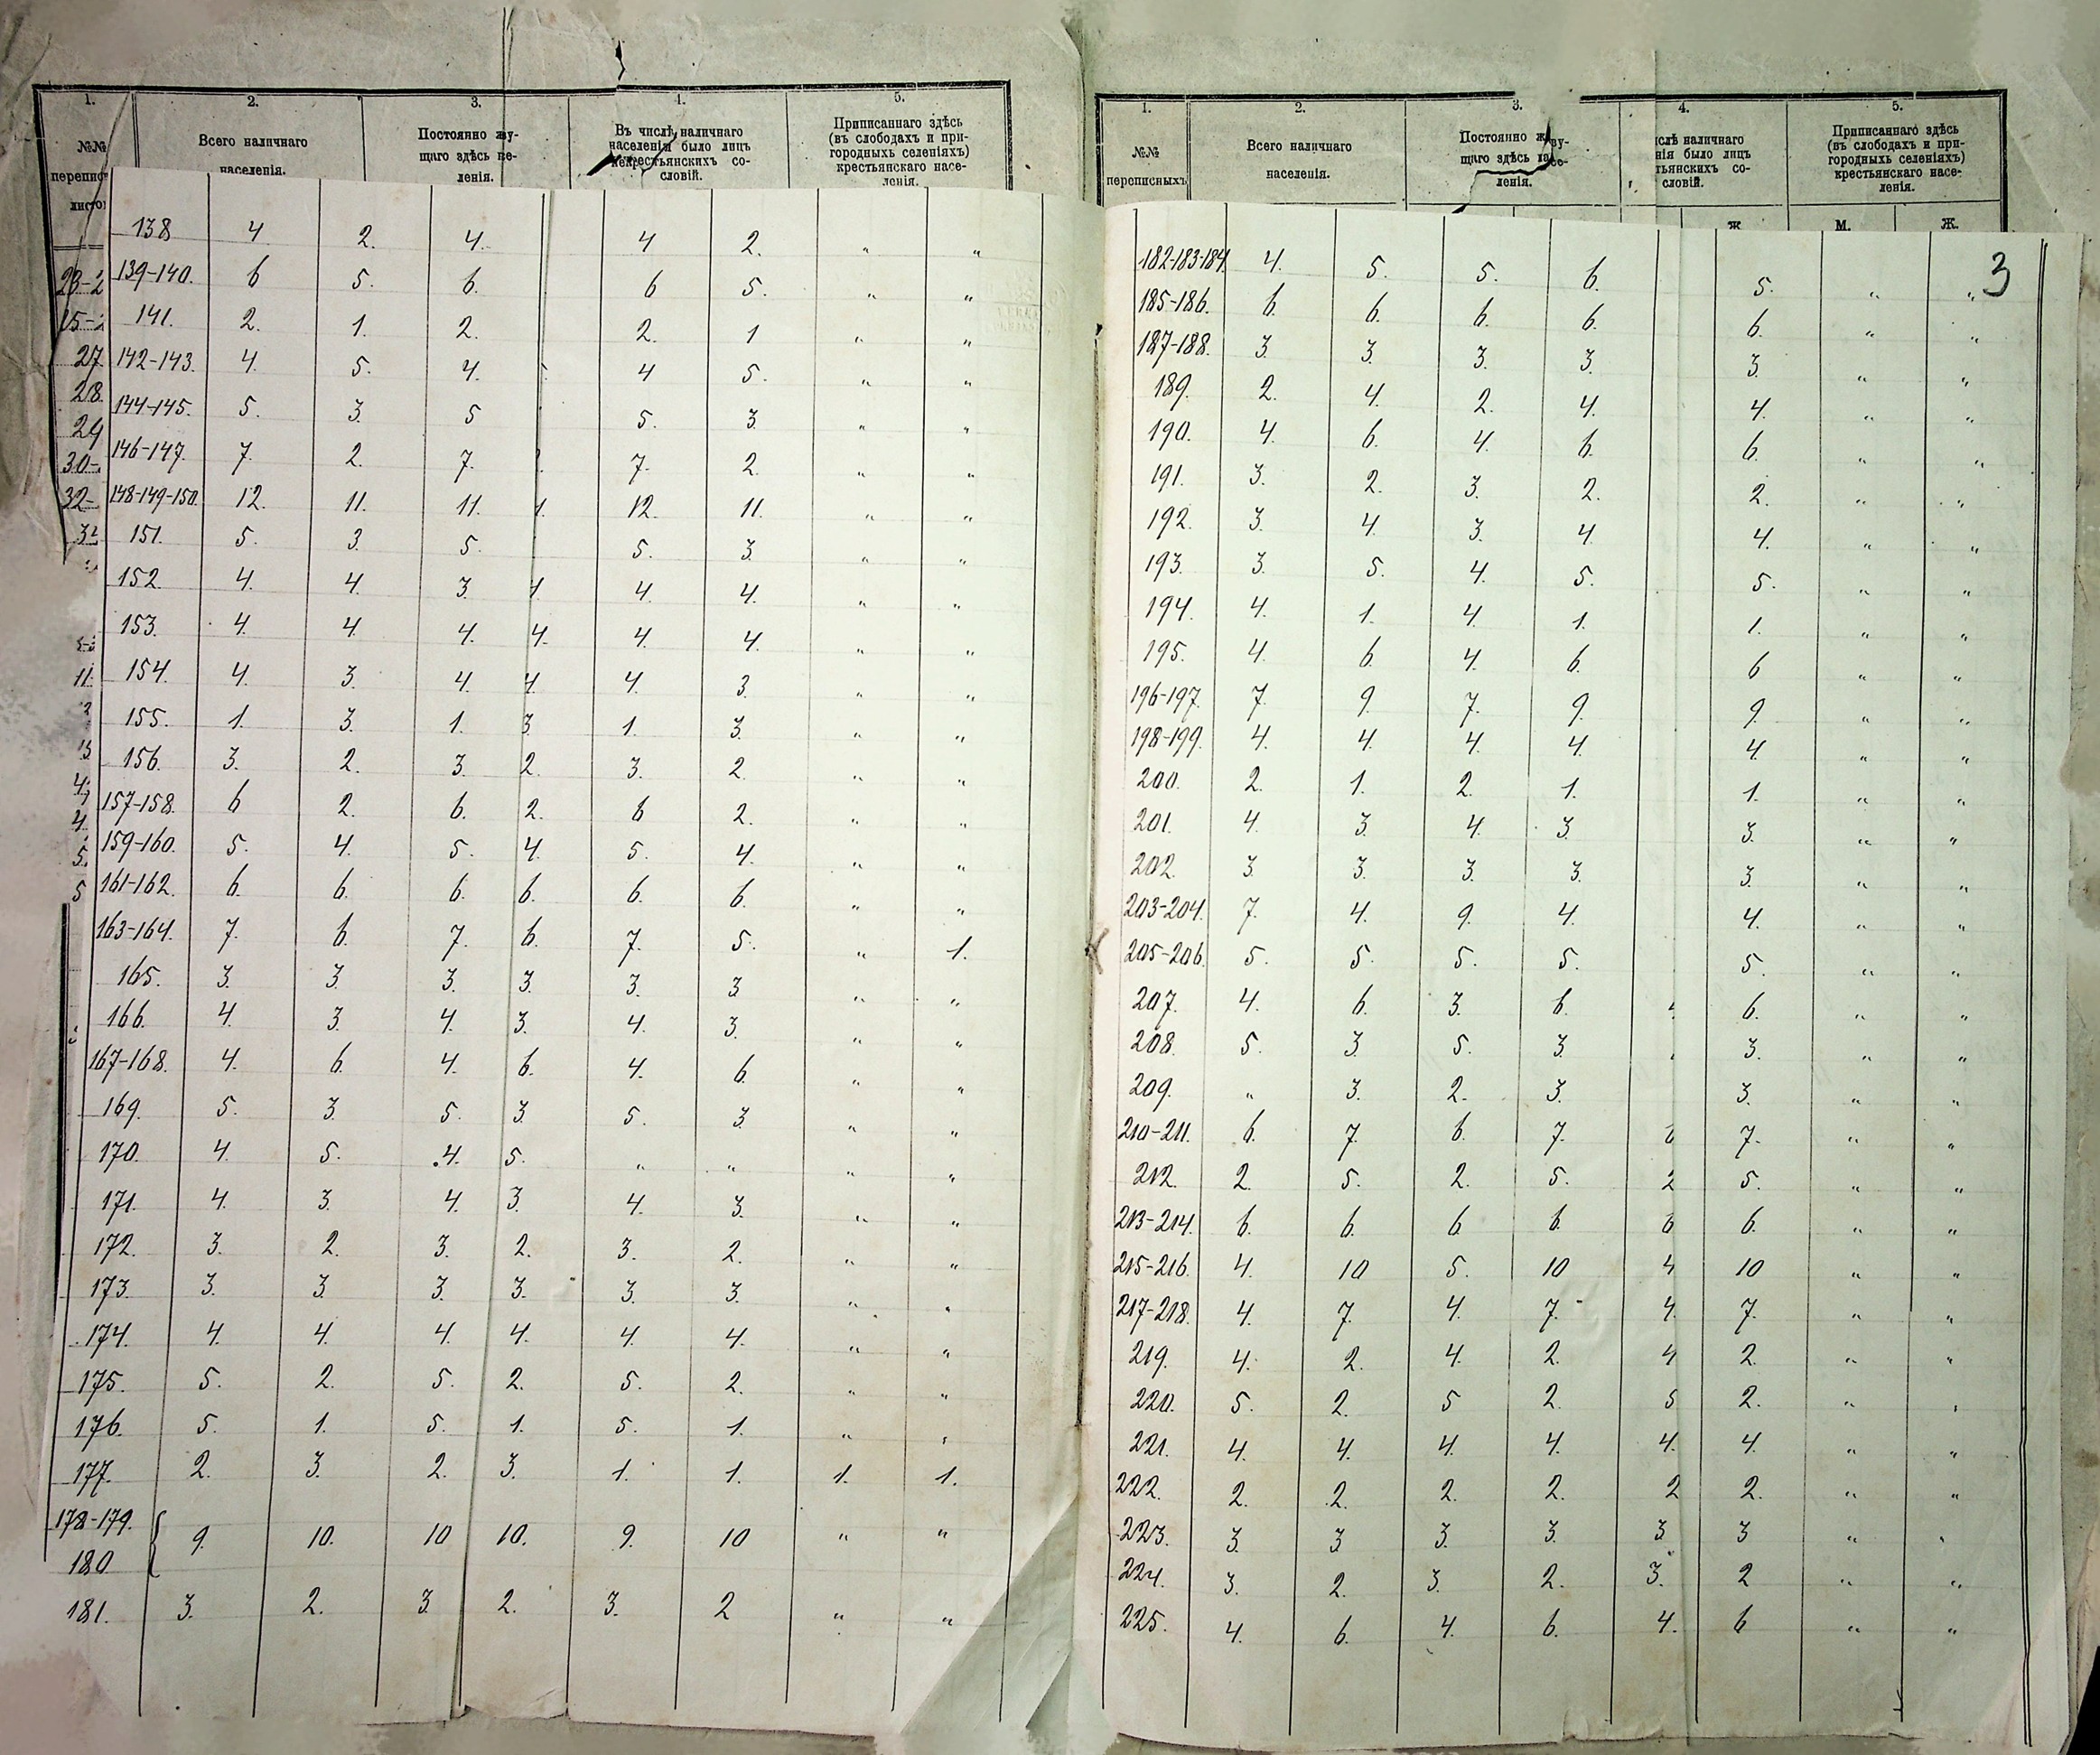 1. 2. 3. 4. 5.
№№ Всего наличнаго Постоянно жи- Въ числѣ наличнаго Приписаннаго здѣсь
населенія было лицъ (въ слободахъ и при-
щаго здѣсь некрестьянскихъ со- городныхъ селеніяхъ)
населенія. ленія. словій. крестьянскаго насе-
ленія.
138 4 2. 4. 4 2. „ „
139-140. 6 5. 6. 6 5. „ „
141. 2. 1. 2. 2. 1 „ „
27. 142-143. 4. 5. 4. 4 5. „ „
28. 144-145. 5. 3. 5 5. 3. „ „
29 146-147. 7. 2. 7. 7. 2. „ „
148-149-150. 12. 11. 11. 1. 12. 11. „ „
151. 5. 3. 5. 5. 3. „ „
152. 4. 4. 3. 4. 4. „ „
153. 4. 4. 4. 4. 4. 4. „ „
154. 4. 3. 4. 4. 4. 3. „ „
155. 1. 3. 1. 3. 1. 3. „ „
156. 3. 2. 3. 2. 3. 2. „ „
157-158. 6 2. 6. 2. 6 2. „ „
159-160. 5. 4. 5. 4. 5. 4. „ „
161-162. 6. 6. 6. 6. 6. 6. „ „
163-164. 7. 6. 7. 6. 7. 5. „ 1.
165. 3. 3. 3. 3. 3. 3 „ „
166. 4. 3. 4. 3. 4. 3. „ „
167-168. 4. 6. 4. 6. 4. 6. „ „
169. 5. 3. 5. 3. 5. 3. „ „
170. 4. 5. 4. 5. „ „ „ „
171. 4. 3. 4. 3. 4. 3. „ „
172. 3. 2. 3. 2. 3. 2. „ „
173. 3. 3. 3. 3. 3. 3. „ „
174. 4. 4. 4. 4. 4. 4. „ „
175. 5. 2. 5. 2. 5. 2. „ „
176. 5. 1. 5. 1. 5. 1. „ „
177. 2. 3. 2. 3. 1. 1. 1. 1.
178-179.
180 9. 10. 10 10. 9. 10 „ „
181. 3. 2. 3. 2. 3. 2 „ „
1. 2. 3. 4. 5.
№№ Всего наличнаго Постоянно наличнаго Приписаннаго здѣсь
было лицъ (въ слободахъ и при-
переписныхъ населенія. щаго здѣсь со- городныхъ селеніяхъ)
ленія. словій. крестьянскаго насе-
ленія.
Ж М. Ж.
3
182-183-184. 4. 5. 5. 6. 5. „ „
185-186. 6. 6. 6. 6. 6. „ „
187-188. 3. 3. 3. 3. 3. „ „
189. 2. 4. 2. 4. 4. „ „
190. 4. 6. 4. 6. 6. „ „
191. 3. 2. 3. 2. 2. „ „
192. 3. 4. 3. 4. 4. „ „
193. 3. 5. 4. 5. 5. „ „
194. 4. 1. 4. 1. 1. „ „
195. 4. 6. 4. 6. 6 „ „
196-197. 7. 9. 7. 9. 9. „ „
198-199. 4. 4. 4. 4. 4. „ „
200. 2. 1. 2. 1. 1. „ „
201. 4. 3. 4. 3. 3. „ „
202. 3. 3. 3. 3. 3. „ „
203-204. 7. 4. 9. 4. 4. „ „
205-206. 5. 5. 5. 5. 5. „ „
207. 4. 6. 3. 6. 6. „ „
208. 5. 3. 5. 3. 3. „ „
209. „ 3. 2. 3. 3. „ „
210-211. 6. 7. 6. 7. 6 7. „ „
212. 2. 5. 2. 5. 2 5. „ „
213-214. 6. 6. 6. 6. 6 6. „ „
215-216. 4. 10 5. 10 4 10 „ „
217-218. 4. 7. 4. 7. 4. 7. „ „
219. 4. 2. 4. 2. 4 2. „ „
220. 5. 2. 5 2. 5 2. „ „
221. 4. 4. 4. 4. 4. 4. „ „
222. 2. 2. 2. 2. 2 2. „ „
223. 3. 3 3. 3. 3. 3 „ „
224. 3. 2. 3. 2. 3. 2 „ „
225. 4. 6. 4. 6. 4. 6 „ „